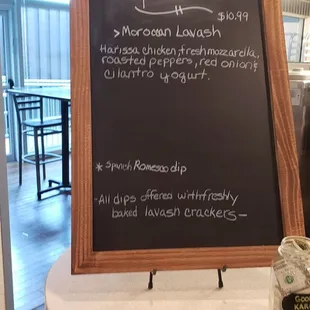 $10.99
>Moroccan Lavash
Harissa chicken, fresh mozzarella,
roasted peppers, red onion &
cilantro yogurt.
* Spanish Romesco dip
-All dips offered with freshly
baked lavash crackers-
GOOD
KAR